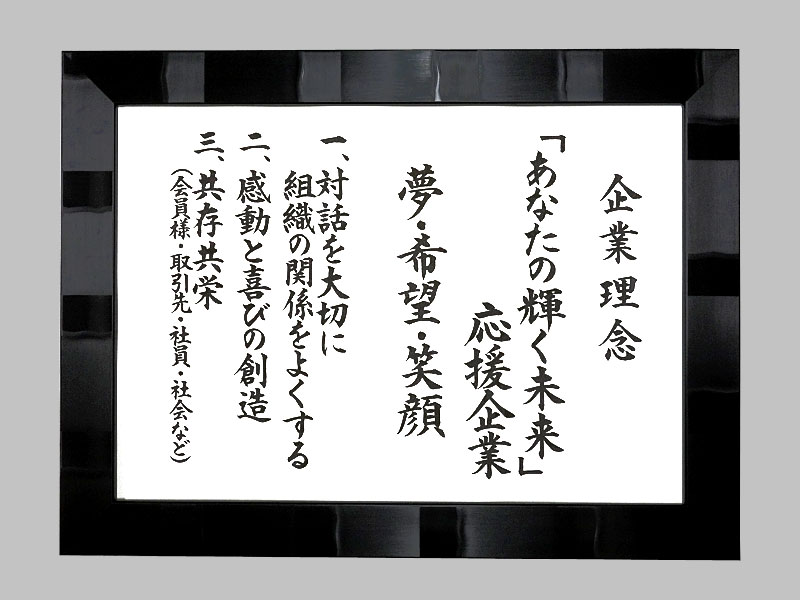 企業理念
「あなたの輝く未来」
応援企業
夢・希望・笑顔
一、対話を大切に
組織の関係をよくする
二、感動と喜びの創造
三、共存共栄
(会員様・取引先・社員・社会など)